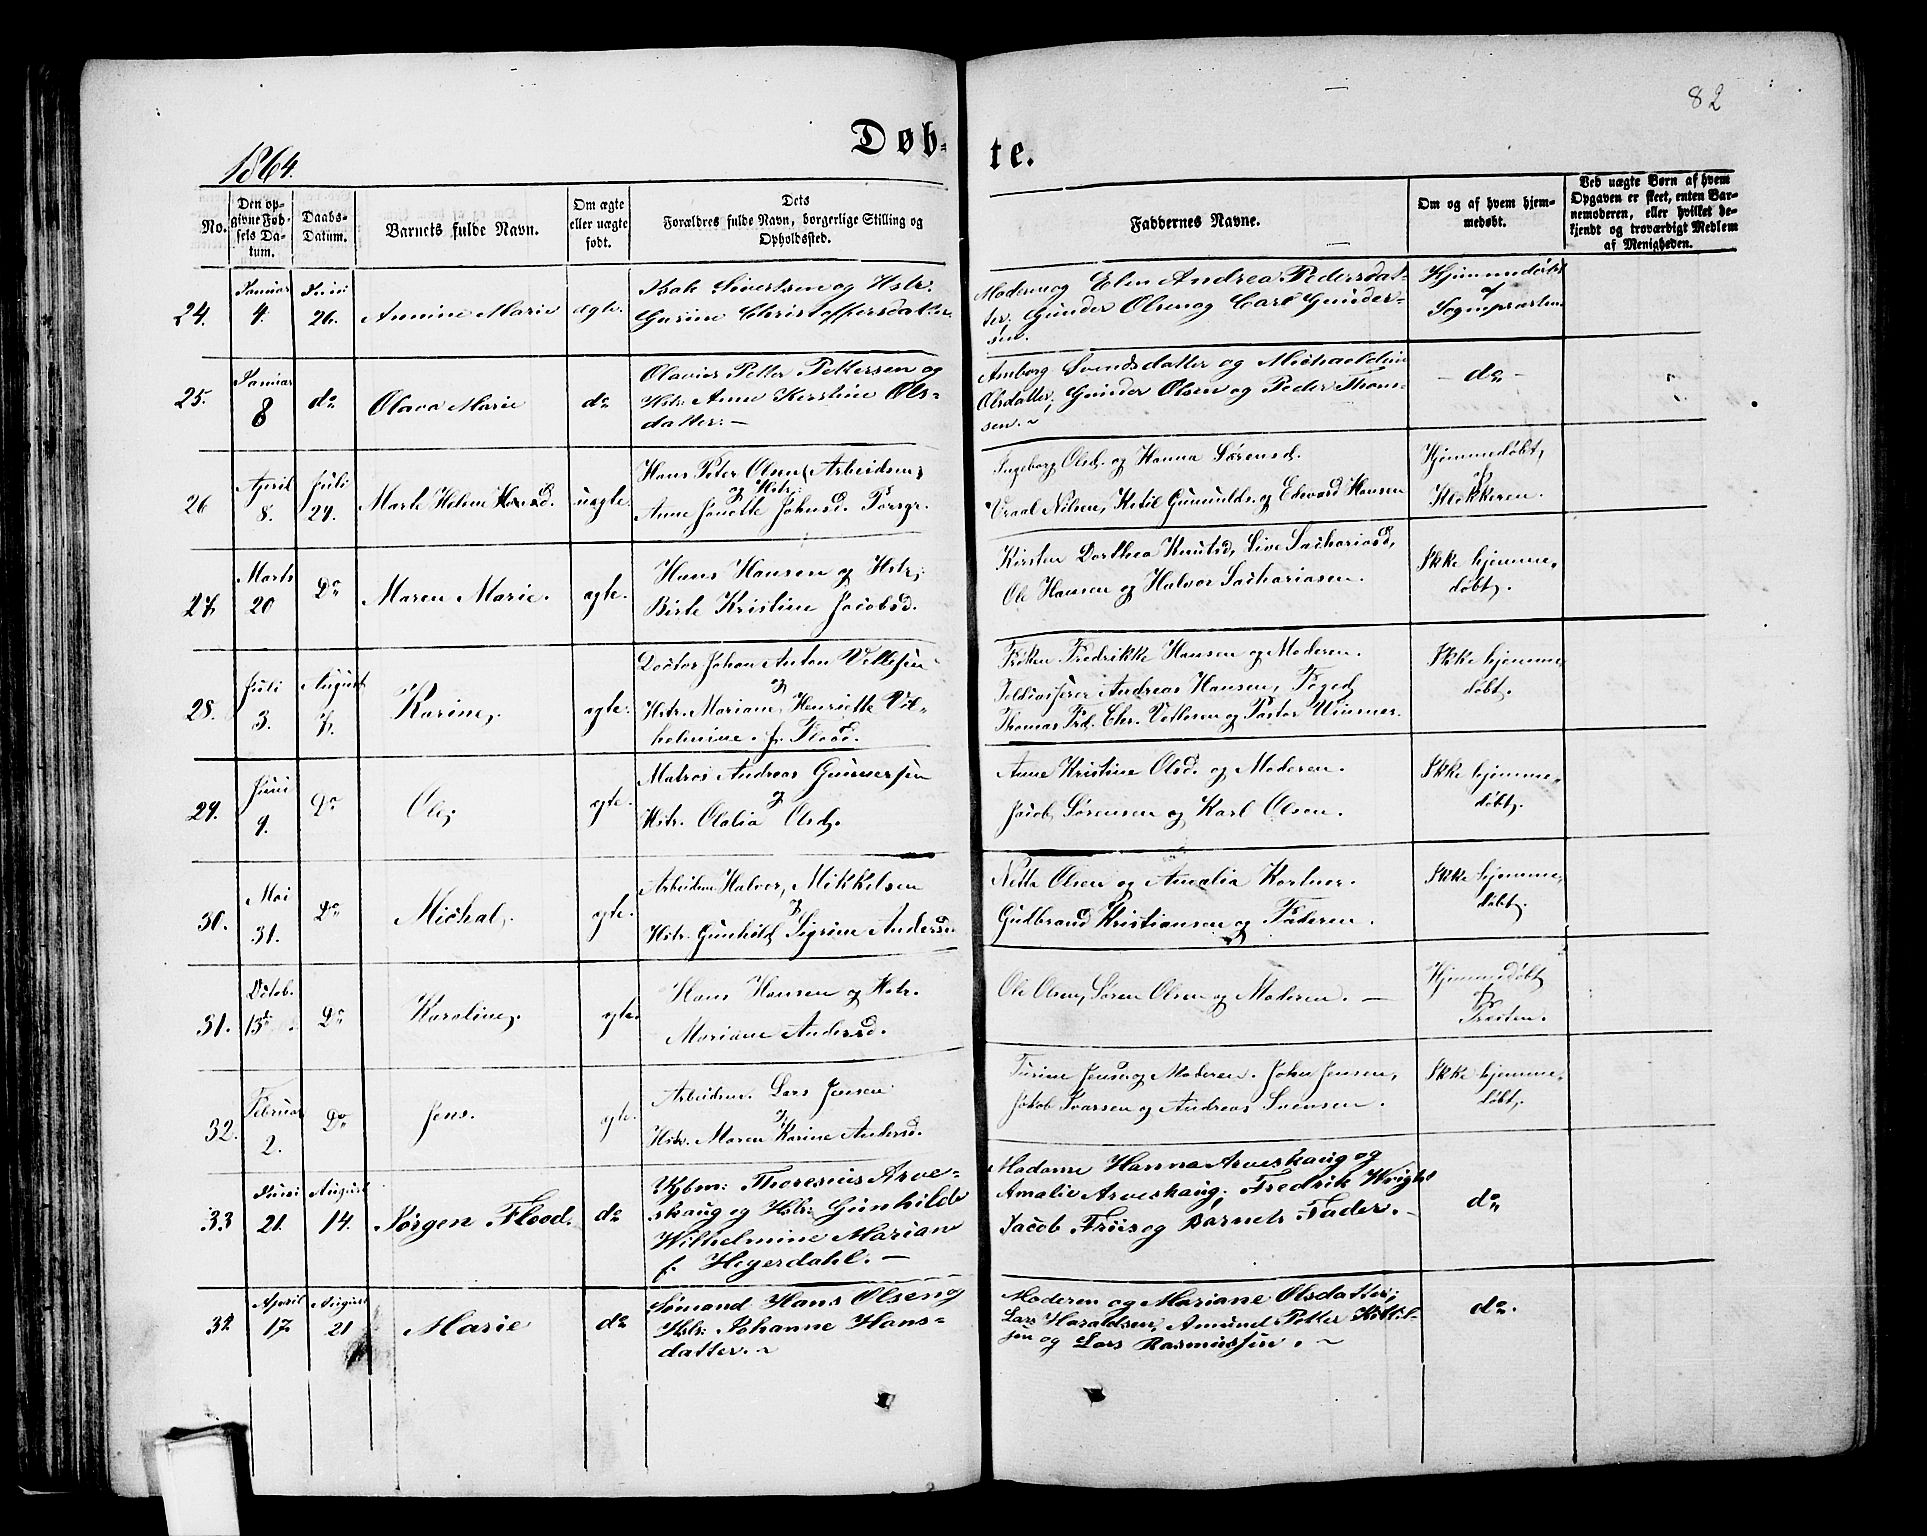 82
1864.
Døb-
te.
No.
Den op-
givne Fød-
sels Da-
tum.
Daabs-
Datum.
Barnets fulde Navn.
Om ægte
eller uægte
født.
Dets
Forældres fulde Navn, borgerlige Stilling og
Opholdssted.
Faddernes Navne.
Om og af hvem hjem-
medøbt.
Ved uægte Børn af hvem
Opgaven er skeet, enten Bar-
nemoderen, eller hvilket be-
kjendt og troværdigt Medlem
af Menigheden.
24.
Januar
4.
Juni
26.
Annine Marie
ægte.
Isak Sivertsen og Hstr.
Gurine Christoffersdatter
Moderen og Elen Andrea Pedersdat-
ter. Gunder Olsen og Carl Gunder-
sen.
Hjemmedøbt
af
Sognepræsten
25.
Januar
8
do
Olava Marie
do
Olavius Petter Pettersen og
Hstr: Anne Kirstine Ols-
datter: —
Amborg Svendsdatter og Michaeldine
Olsdatter; Gunder Olsen og Peder Thom-
sen. ~
- do -
26
April
8.
Juli
24.
Marte Helene Hansd.
uægte.
Hans Peter Olsen (Arbeidsm)
og Hstr:
Anne Johnsd. Porsgr.
Ingeborg Olsd. og Hanna Sørensd.
Vraal Nilsen, Ketil Gunnulds. og Edvard Hansen
Hjemmedøbt,
af
Klokkeren.
27.
Marts
20
Do
Maren Marie.
ægte.
Hans Hansen og Hstr.
Birte Kristine Jacobsd.
Kirsten Dorthea Knutsd, Live Sachariasd,
Ole Hansen og Halvor Sachariasen.
Ikke hjemme-
døbt.
28.
Juli
3.
August
7.
Karine,
ægte.
Doctor Johan Anton Vettesen
og
Hstr. Mariane Henriette Vil-
helmine f. Flood.
Frøken Fredrikke Hansen og Moderen.
Toldkasserer Andreas Hansen, Foged
Thomas Frd. Chr. Vettesen og Pastor Winsnes.
Ikke hjemme-
døbt.
29.
Juni
9.
Do
Ole,
ægte.
Matros Andreas Gunnersen
og
Hstr. Olalia Olsd.
Anne Kristine Olsd. og Moderen.
Jacob Sørensen og Karl Olsen.
Ikke hjemme-
døbt.
30.
Mai
31.
Do
Michal,
ægte.
Arbeidsm Halvor, Mikkelsen
og
Hstr. Gunhild Sigrine Andersd
Netta Olsen og Amalia Kortner.
Gudbrand Kristiansen og Faderen.
Ikke hjemme-
døbt.
31.
Octob.
13de
Do
Karoline,
ægte
Hans Hansen og Hstr.
Mariane Andersd.
Ole Olsen, Søren Olsen og Moderen. —
Hjemmedøbt
af
Præsten.
32.
Februar
2.
Do
Jens.
ægte.
Arbeidsm. Lars Jensen
og
Hstr. Maren Karine Andersd.
Turine Jensd og Moderen. John Jensen,
Jakob Ivarsen og Andreas Svensen.
Ikke hjemme-
døbt.
33
Juni
21.
August
14.
Jørgen Flood.
do
Kjbm: Thoresius Arve-
skaug og Hstr: Gunhilde
Wilhelmine Mariane
f. Heyerdahl. —
Madame Hanna Arveskaug og
Amalie Arveskaug; Fredrik Wright
Jacob Friis og Barnets Fader. -
do
34
April
17
August
21
Marie
do
Sømand Hans Olsen og
Hstr: Johanne Hans-
datter. ~
Moderen og Mariane Olsdatter;
Lars Haraldsen, Amund Petter Kittel-
sen og Lars Rasmussen. ~
do.